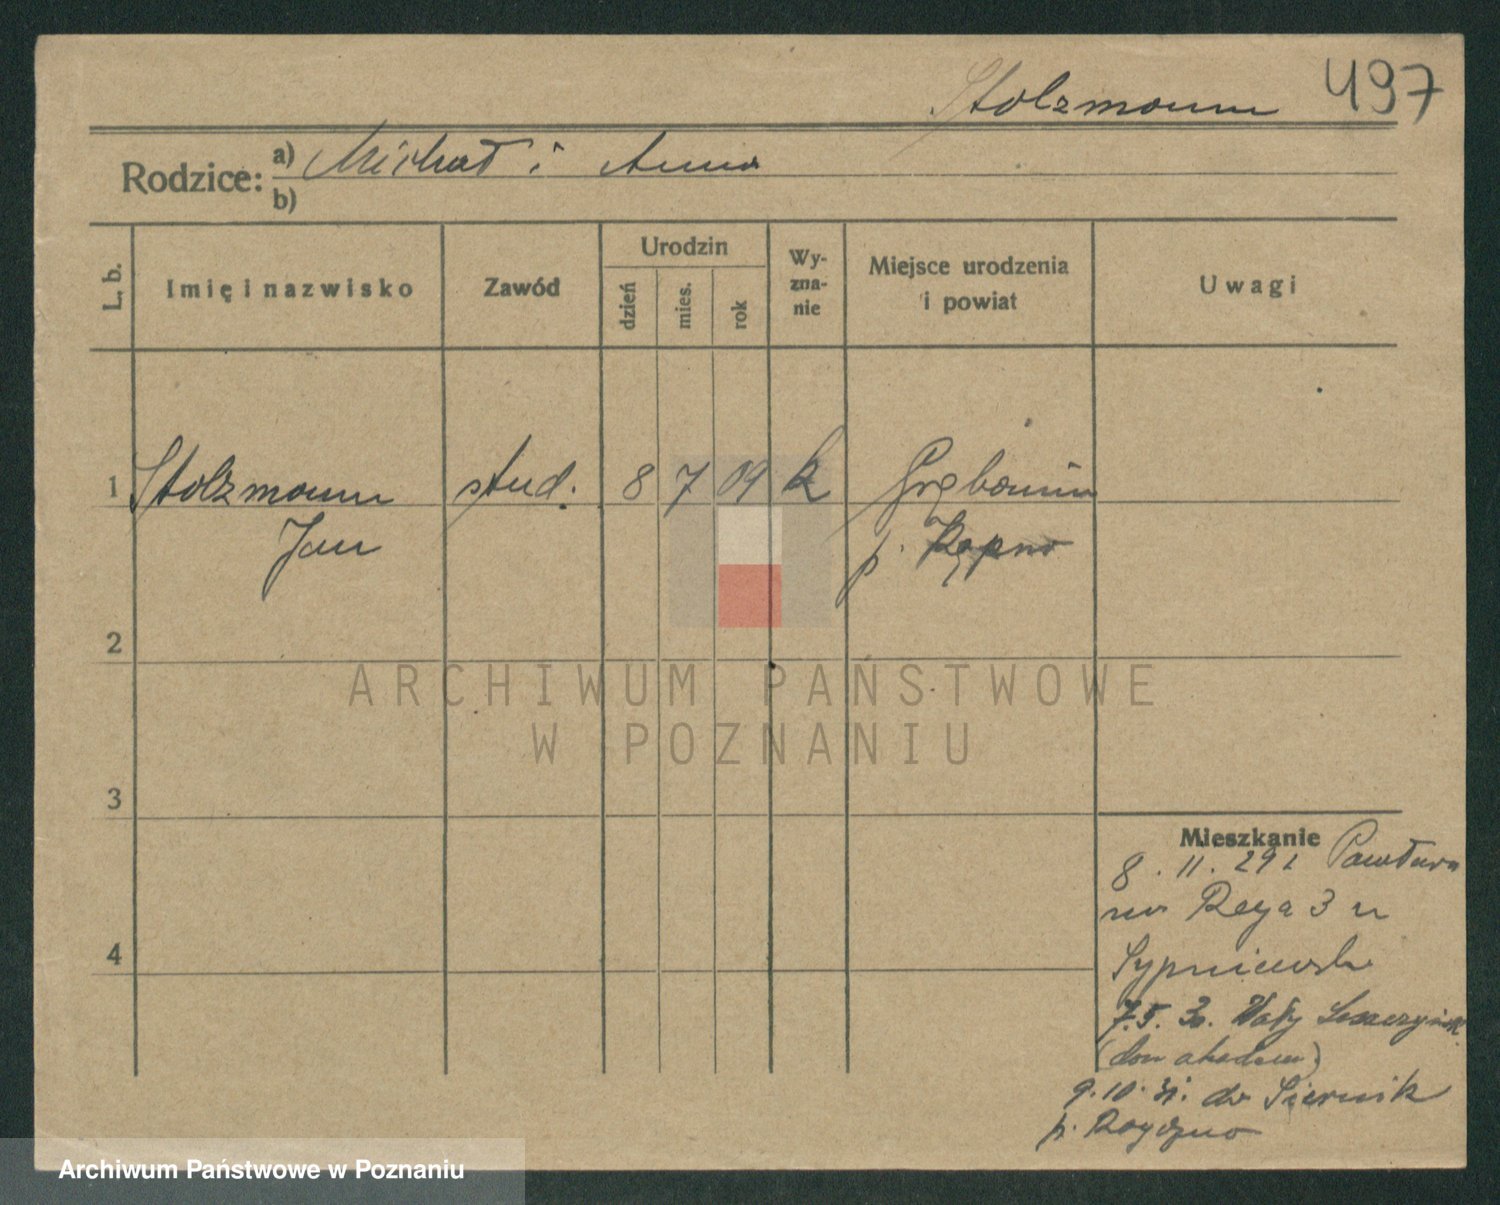 Stolzmann 497
Rodzice: a) Michał i Anna
b)
L. b. Imię i nazwisko Zawód Urodzin dzień mies. rok Wy-zna-nie Miejsce urodzenia i powiat Uwagi
1 Stolzmann stud. 8 7 09 k Grębanin
Jan p. Kępno
2
ARCHIWUM PAŃSTWOWE
W POZNANIU
3
Mieszkanie
8. 11. 29 z
Reja 3 u
Sypniewski
7.5. 30. Wały Leszczyńsk
(dom akadem)
4
9.10.31. do Siernik
p. Rogoźno
Archiwum Państwowe w Poznaniu